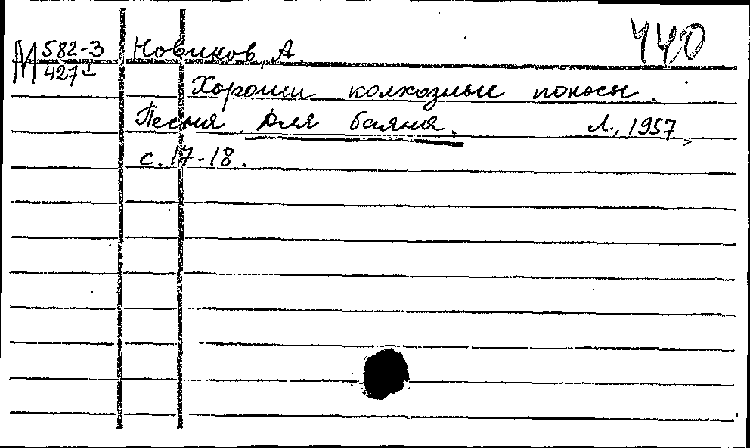 440
М 582-3 Новиков, А.
427 1
Хороши колхозные покосы.
Песня. Для баяна. Л., 1957,
с. 17-18.